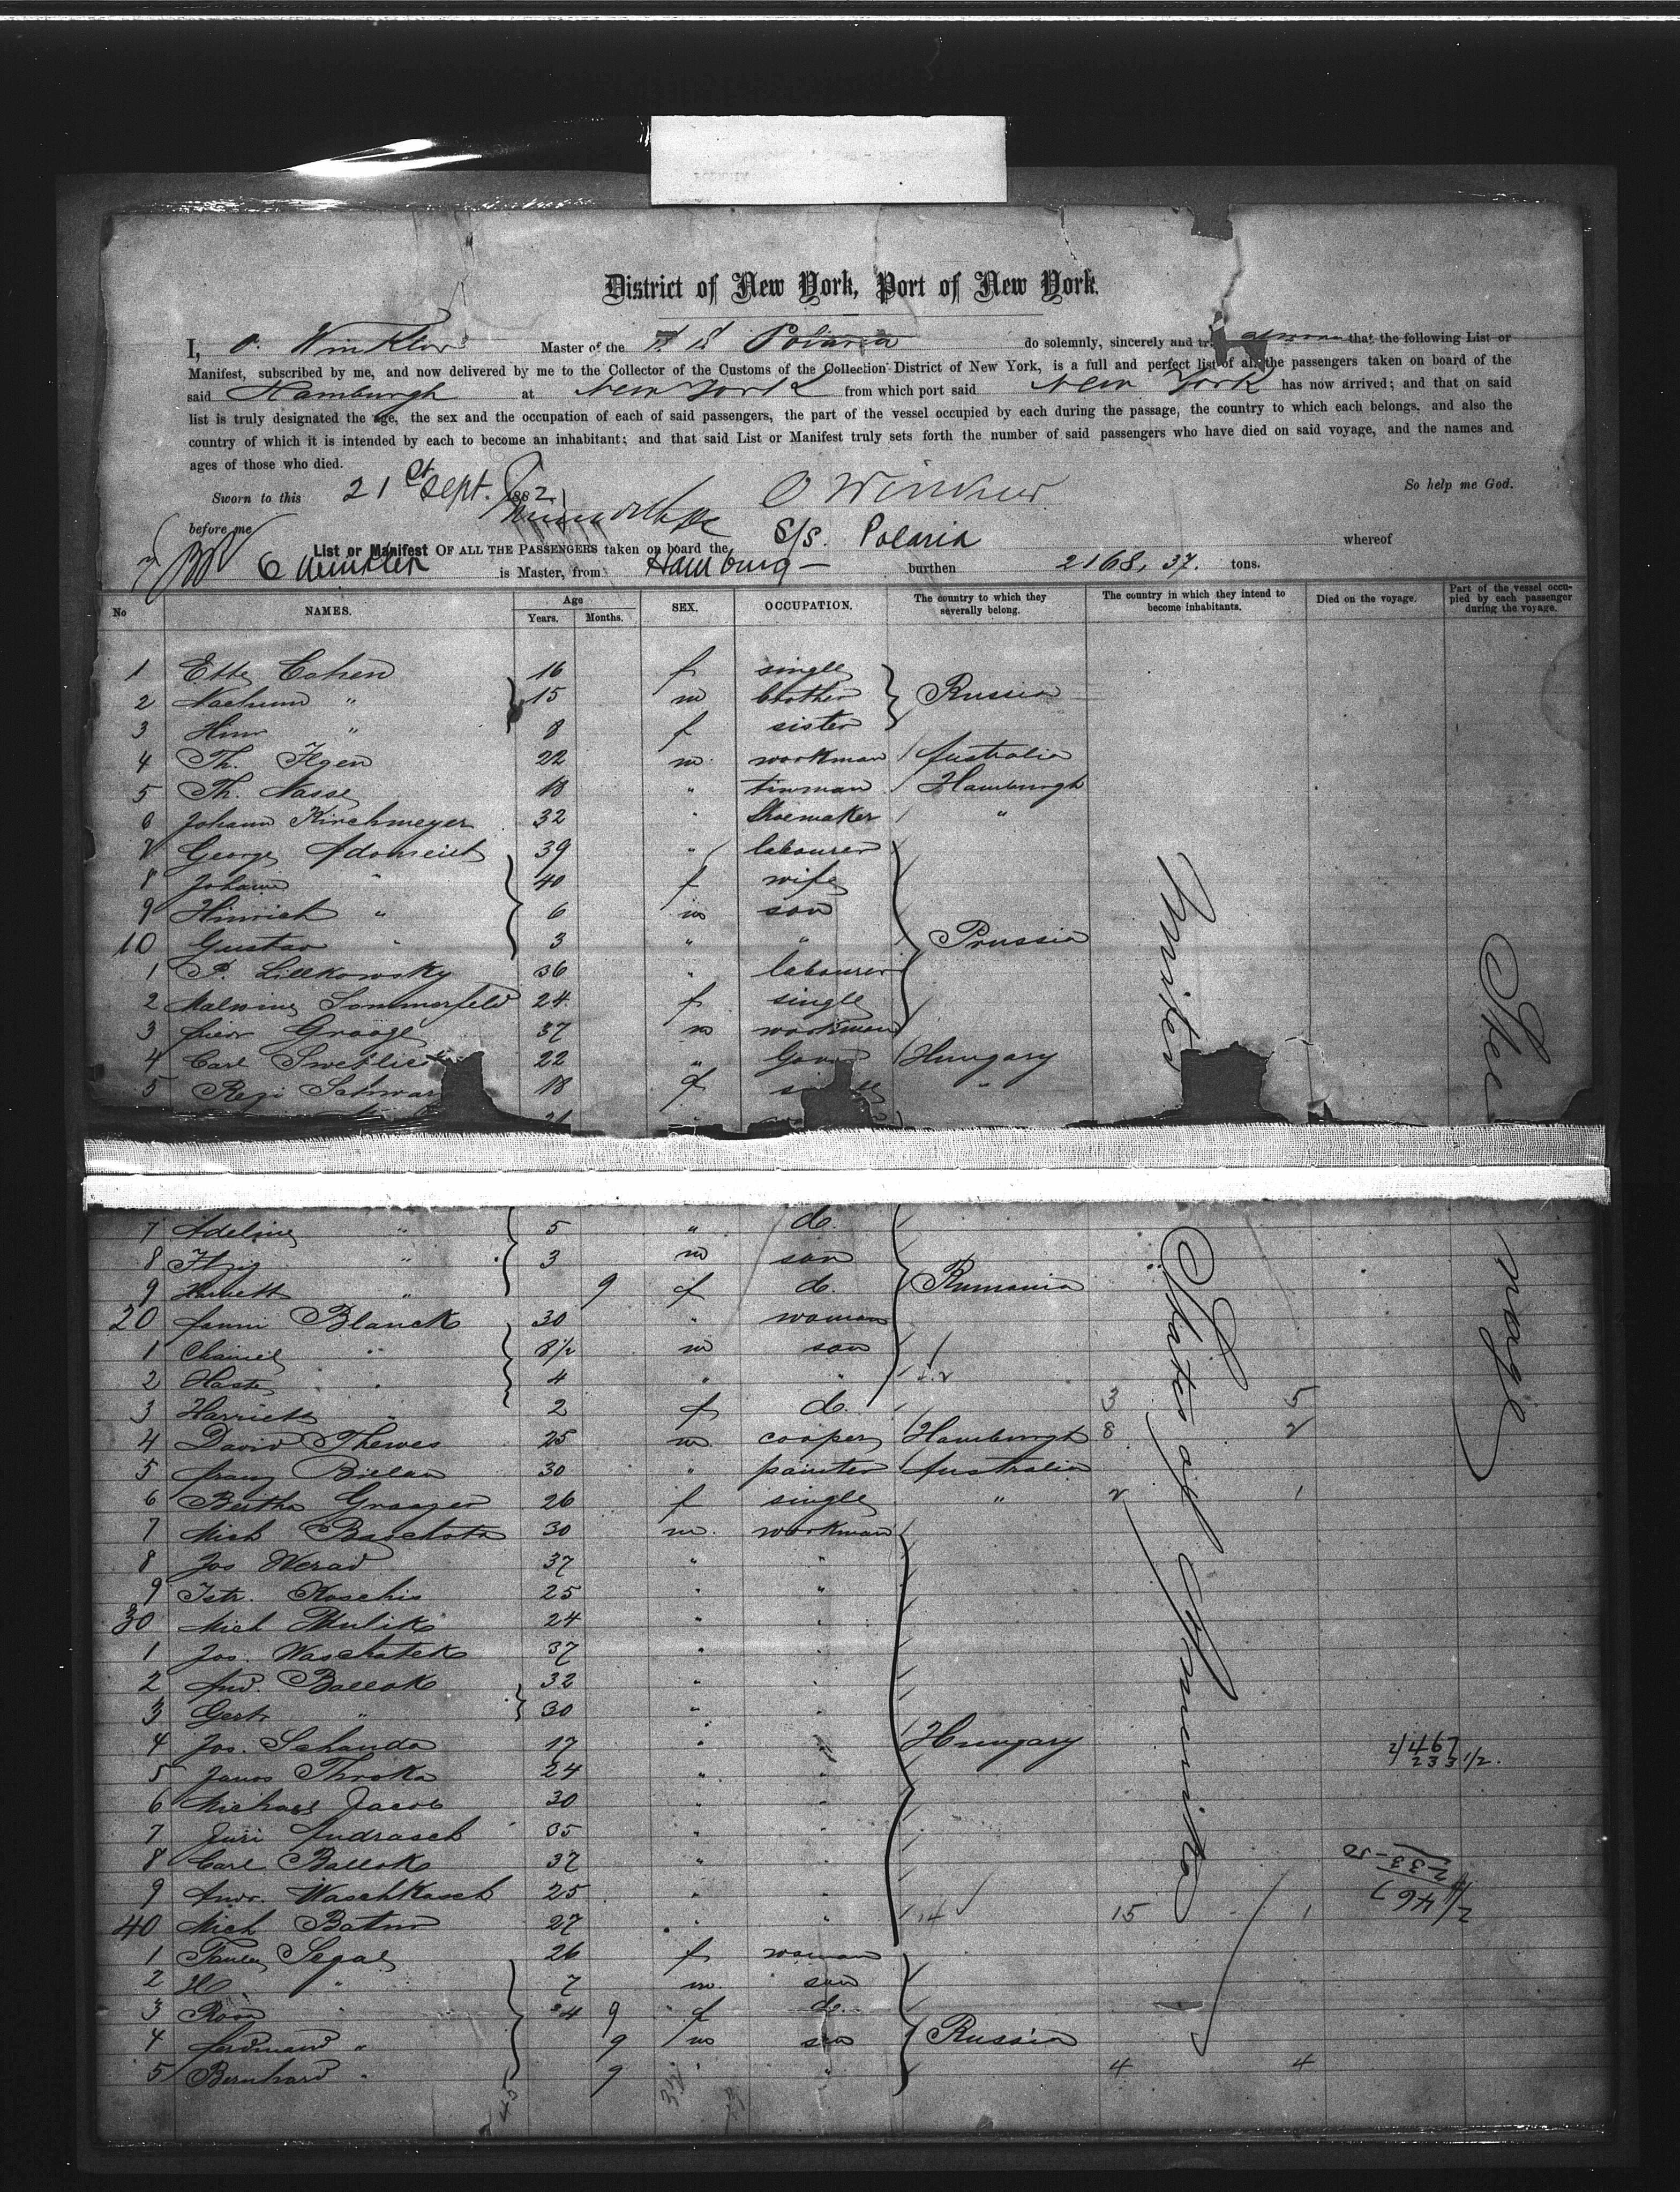 District of New York, Port of New York.
I, O. Winkler Master of the S S Polaria do solemnly, sincerely and that the following List or
Manifest, subscribed by me, and now delivered by me to the Collector of the Customs of the Collection District of New York, is a full and perfect list of all the passengers taken on board of the
said Hamburgh at New York from which port said New York has now arrived; and that on said
list is truly designated the age, the sex and the occupation of each of said passengers, the part of the vessel occupied by each during the passage, the country to which each belongs, and also the
country of which it is intended by each to become an inhabitant; and that said List or Manifest truly sets forth the number of said passengers who have died on said voyage, and the names and
ages of those who died.
So help me God.
Sworn to this 21st Sept. 1882
O Winkler
before me
List or Manifest OF ALL THE PASSENGERS taken on board the S/s. Polaria whereof
Winkler is Master, from Hamburg burthen 2168,37. tons.
No NAMES. Age Years. Months. SEX. OCCUPATION. The country to which they severally belong. The country in which they intend to become inhabitants. Died on the voyage. Part of the vessel occupied by each passenger during the voyage.
1 Cohen 16 f single
2 Nachum " 15 m brother Russia
3 " 8 f sister
4 Th. Ilgen 22 m workman Australia
5 Th. Nasse 18 " tinman Hamburgh
6 Johann Kirchmeyer 32 " Shoemaker "
7 George Adomeit 39 " labourer
8 Johann " 40 f wife
9 Hinrich " 6 m son
10 Gustav " 3 " " Prussia
1 P. Lillkowsky 36 " labourer
2 Malwine Sommerfeld 24 f single
3 37 m workman
4 Carl 22 " Hungary
5 Regi Schwar 18 f "
21
7 Adeline " 5 " do.
8 Itzig " 3 m son
9 " 9 f do. Rumania
20 Fanni Blanck 30 " woman
1 " 8½ m son
2 " 4 " "
3 Harriett " 2 f do. 3 5
4 David Thewes 25 m cooper Hamburgh 8 2
5 Franz 30 " painter Australia
6 Bertha 26 f single " 2 1
7 Mich 30 m workman
8 Jos 37 " "
9 Istr. 25 " "
30 Mich 24 " "
1 Jos. Waschatek 37 "
2 And. Ballok 32 "
3 Gert. " 30 "
4 Jos. Schanda 17 " Hungary
5 Janos Throka 24 " "
6 Michael Jacob 30 " "
7 Juri Andrasch 35 " "
8 Carl Ballok 37 "
9 Andr. Waschkasch 25 "
40 Mich 27 " " 14 15 1
1 Segal 26 f woman
2 " 7 m son
3 Rosa " 4 9 f do.
4 Ferdinand " 9 m son Russia
5 Bernhard " 9 " 4 4
United States of America
Steerage
2/467
233 1/2.
2/467
233-50
45